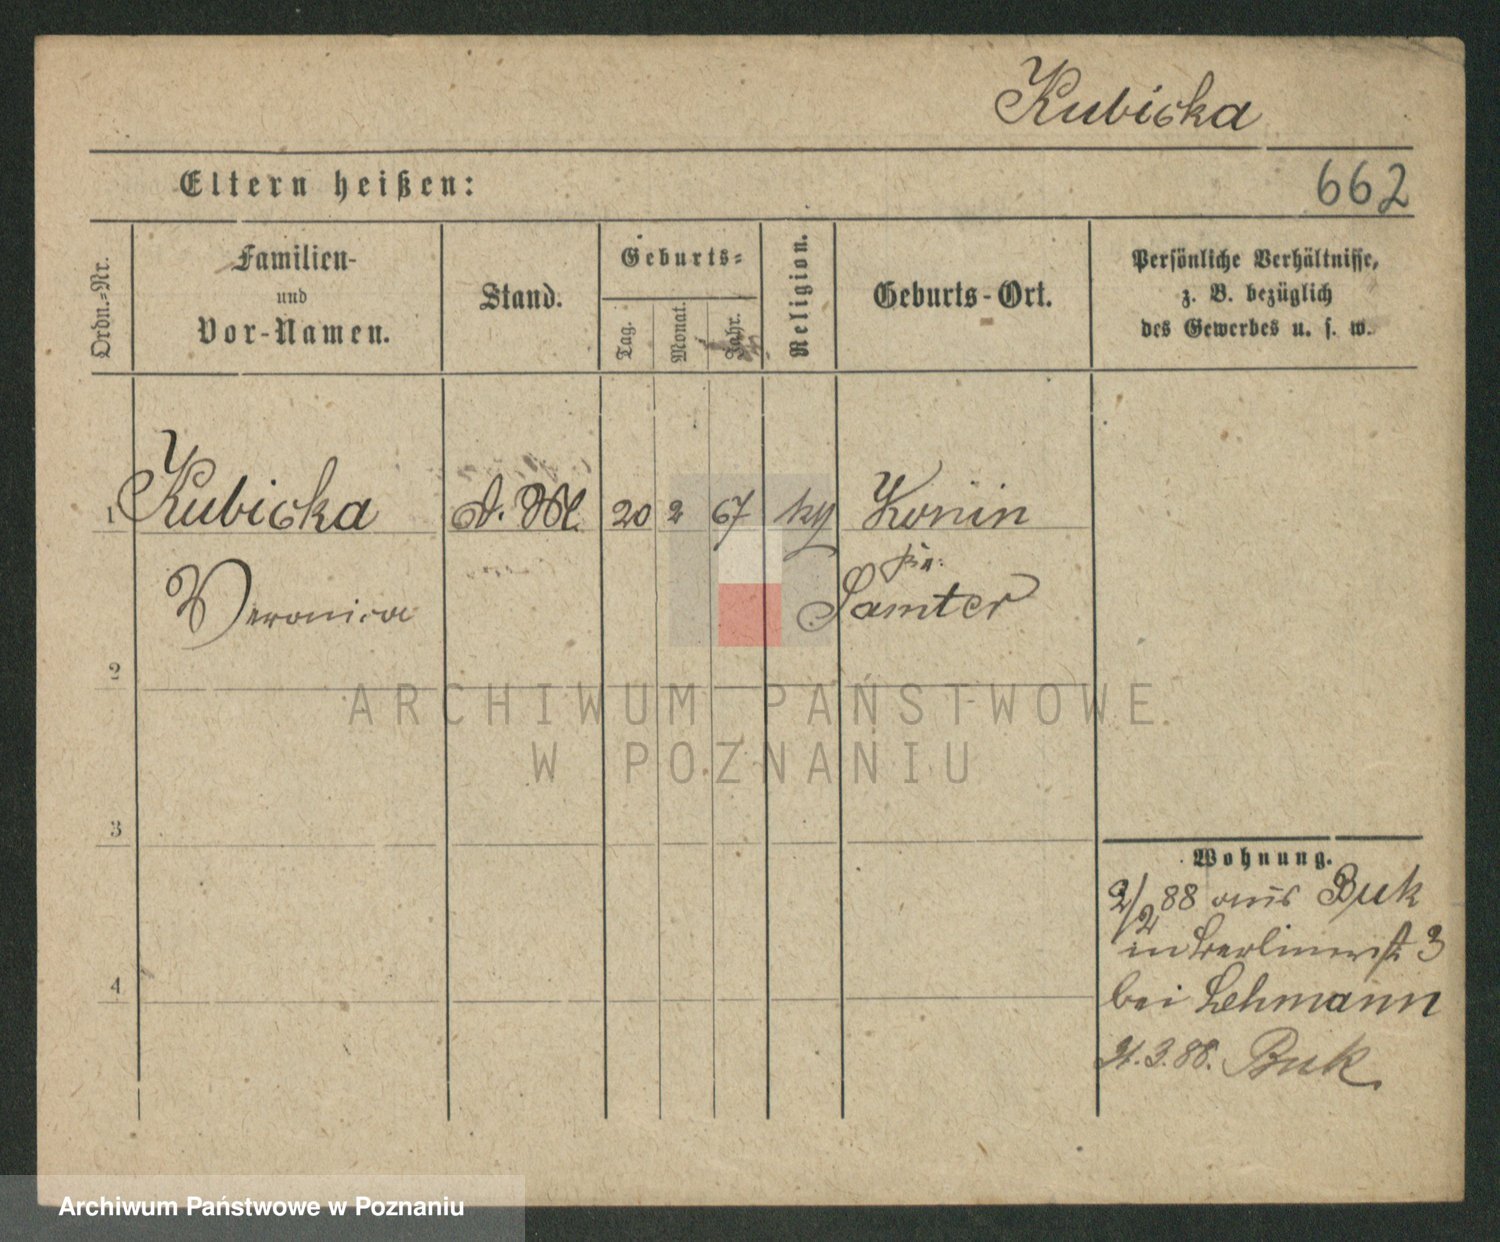 Kubicka
Eltern heißen:
662
Ordn.=Nr.
Familien-
und
Vor-Namen.
Stand.
Geburts=
Tag.
Monat.
Jahr.
Religion.
Geburts-Ort.
Persönliche Verhältnisse,
z. B. bezüglich
des Gewerbes u. s. w.
1 Kubicka d. M. 20 2 67 Konin
Veronica Samter
2
ARCHIWUM PAŃSTWOWE
W POZNANIU
3
Wohnung.
2/2 88 aus Buk
in Berlinerst 3
bei Lehmann
4
3.88. Buk
Archiwum Państwowe w Poznaniu